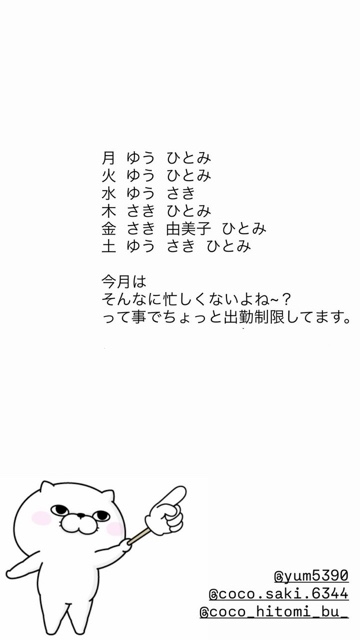 月 ゆう ひとみ
火 ゆう ひとみ
水 ゆう さき
木 さき ひとみ
金 さき 由美子 ひとみ
土 ゆう さき ひとみ
今月は
そんなに忙しくないよね~？
って事でちょっと出勤制限してます。
@yum5390
@coco.saki.6344
@coco_hitomi_bu_